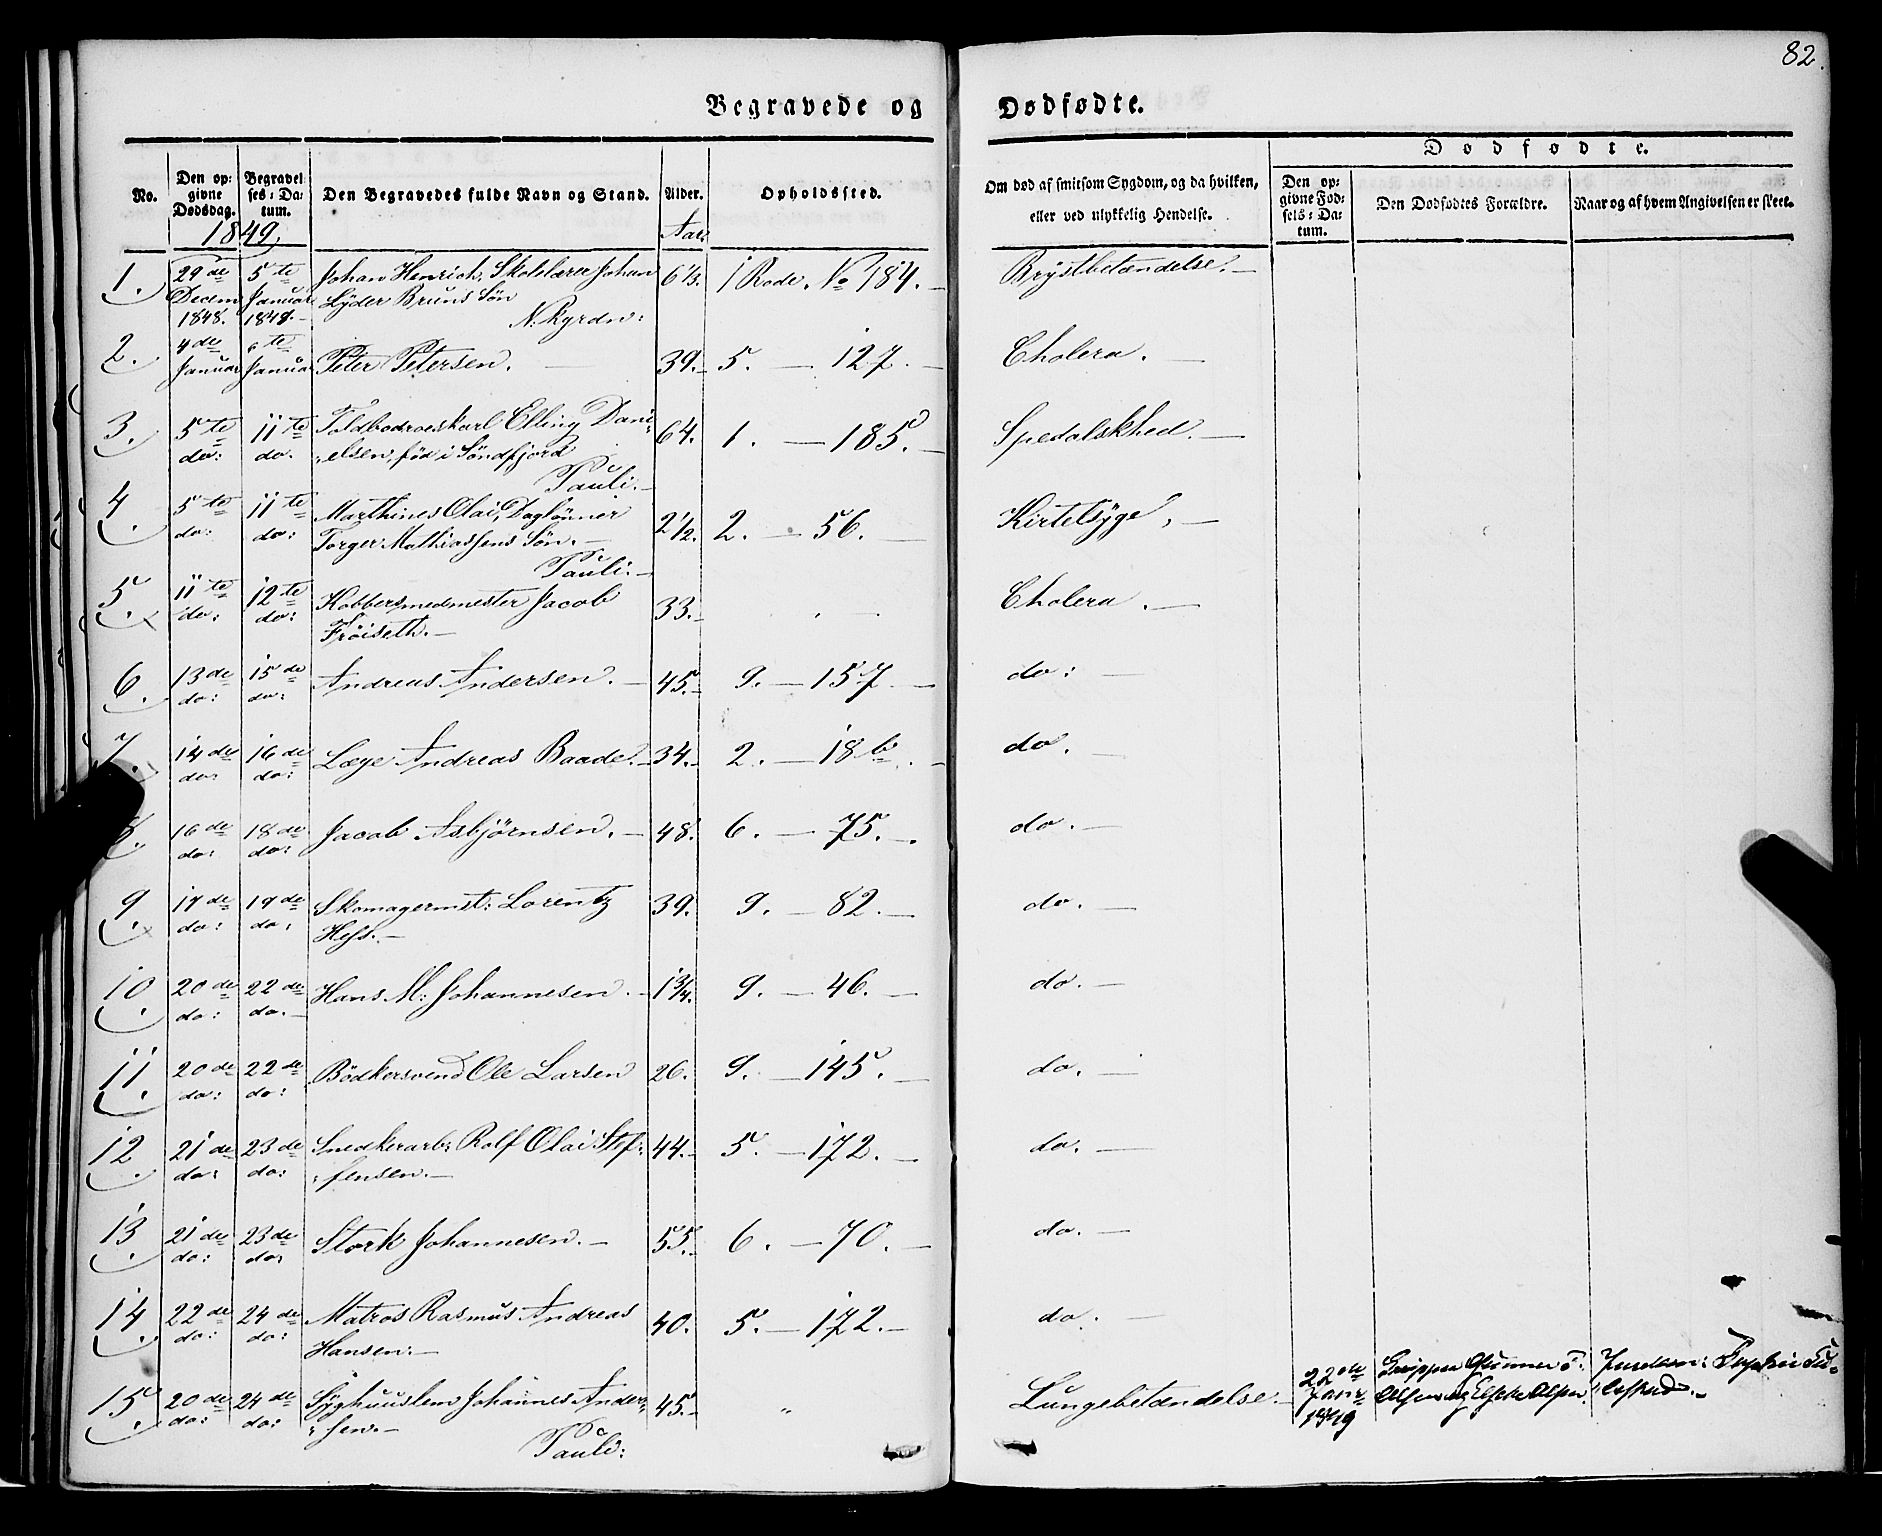 82.
Begravede og Dødfødte.
No. Den opgivne Dødsdag. Begravelses-Datum. Den Begravedes fulde Navn og Stand. Alder. Opholdssted. Om død af smitsom Sygdom, og da hvilken, eller ved ulykkelig Hendelse. Dødfødte. Den opgivne Fødsels-Datum. Den Dødfødtes Forældre. Naar og af hvem Angivelsen er skeet.
1849. Aar.
1. 29de Decem 1848. 5te Januar 1849. Johan Henrich, Skolelærer Johan 6 1/3. 1 Rode. No 184. Brystbetændelse.
Lyder Bruns Søn
N: Kyrdn:
2. 4de Januar 6te Januar Peter Petersen. 39. 5. — 127. Cholera.
3. 5te do: 11te do. Toldbodroeskarl Elling Dani- 64. 1. — 185. Spedalskhed.
elsen, föd i Söndfjord
Pauli.
4. 5te do: 11te do: Marthines Olai, Daglönner 2 1/2. 2. — 56. Kirtelsyge.
Torger Mathiassens Søn.
Pauli.
5. 11te do: 12te do: Kobbersmedmester Jacob 33. Cholera.
Fröiseth.
6. 13de do: 15de do: Andreas Andersen. 45. 9. — 157. do:
7. 14de do: 16de do: Læge Andreas Baade. 34. 2. — 18b. do.
8. 16de do: 18de do: Jacob Asbjørnsen. 48. 6. — 75. do.
9. 17de do: 19de do. Skomagermst: Lorentz 39. 9. — 82. do.
Hess.
10. 20de do: 22de do. Hans M: Johannesen. 1 3/4. 9. — 46. do.
11. 20de do: 22de do: Bödkersvend Ole Larsen 26. 9. — 145. do.
12. 21de do: 23de do: Snedkerarb: Rolf Olai Stef- 44. 5. — 172. do.
fensen.
13. 21de do: 23de do Stork Johannesen. 55. 6. — 70. do.
14. 22de do: 24de do: Matros Rasmus Andreas 40. 5. — 172. do.
Hansen.
15. 20de do: 24de do: Syghuuslem Johannes Ander- 45. " Lungebetændelse. 22de Janr 1849 Olsen og Olsen
sen.
Pauli: